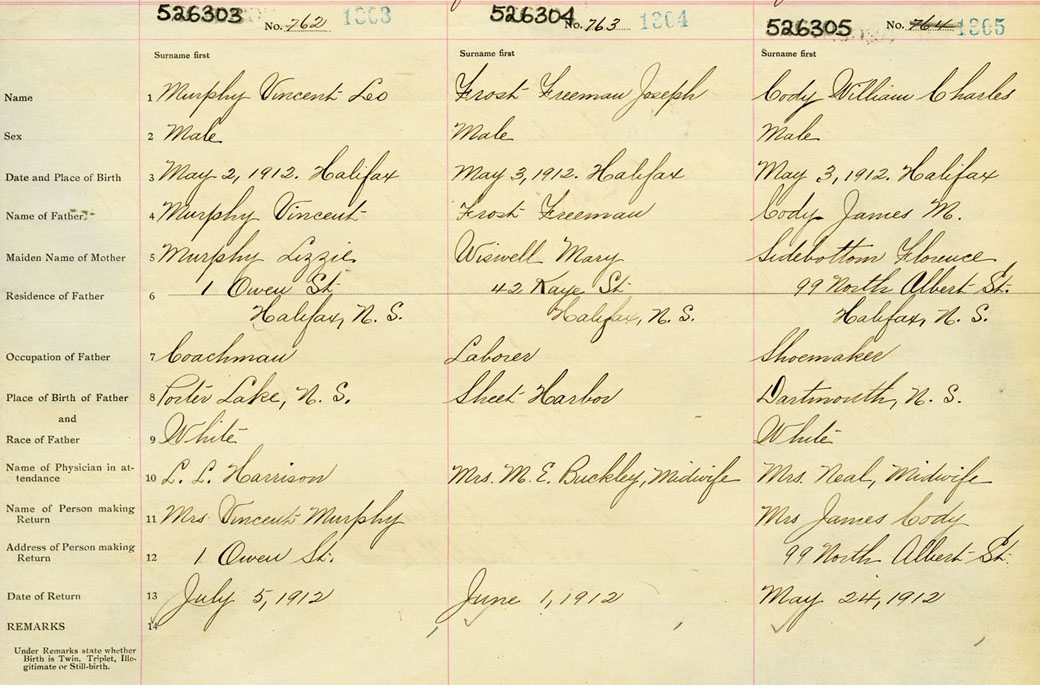 526303 No. 762 1303 526304 No. 763 1304 526305 No. 764 1305
Surname first Surname first Surname first
Name 1 Murphy Vincent Leo Frost Freeman Joseph Cody William Charles
Sex 2 Male Male Male
Date and Place of Birth 3 May 2, 1912. Halifax May 3, 1912. Halifax May 3, 1912. Halifax
Name of Father 4 Murphy Vincent Frost Freeman Cody James M.
Maiden Name of Mother 5 Murphy Lizzie Wiswell Mary Sidebottom Florence
Residence of Father 6 1 Owen St. 42 Kaye St. 99 North Albert St.
Halifax, N. S. Halifax, N. S. Halifax, N. S.
Occupation of Father 7 Coachman Laborer Shoemaker
Place of Birth of Father 8 Porter Lake, N. S. Sheet Harbor Dartmouth, N. S.
and
Race of Father 9 White White
Name of Physician in at-
tendance 10 L. L. Harrison Mrs. M. E. Buckley, Midwife Mrs. Neal, Midwife
Name of Person making
Return 11 Mrs Vincent Murphy Mrs James Cody
Address of Person making
Return 12 1 Owen St. 99 North Albert St.
Date of Return 13 July 5, 1912 June 1, 1912 May 24, 1912
REMARKS 14
Under Remarks state whether
Birth is Twin, Triplet, Ille-
gitimate or Still-birth.